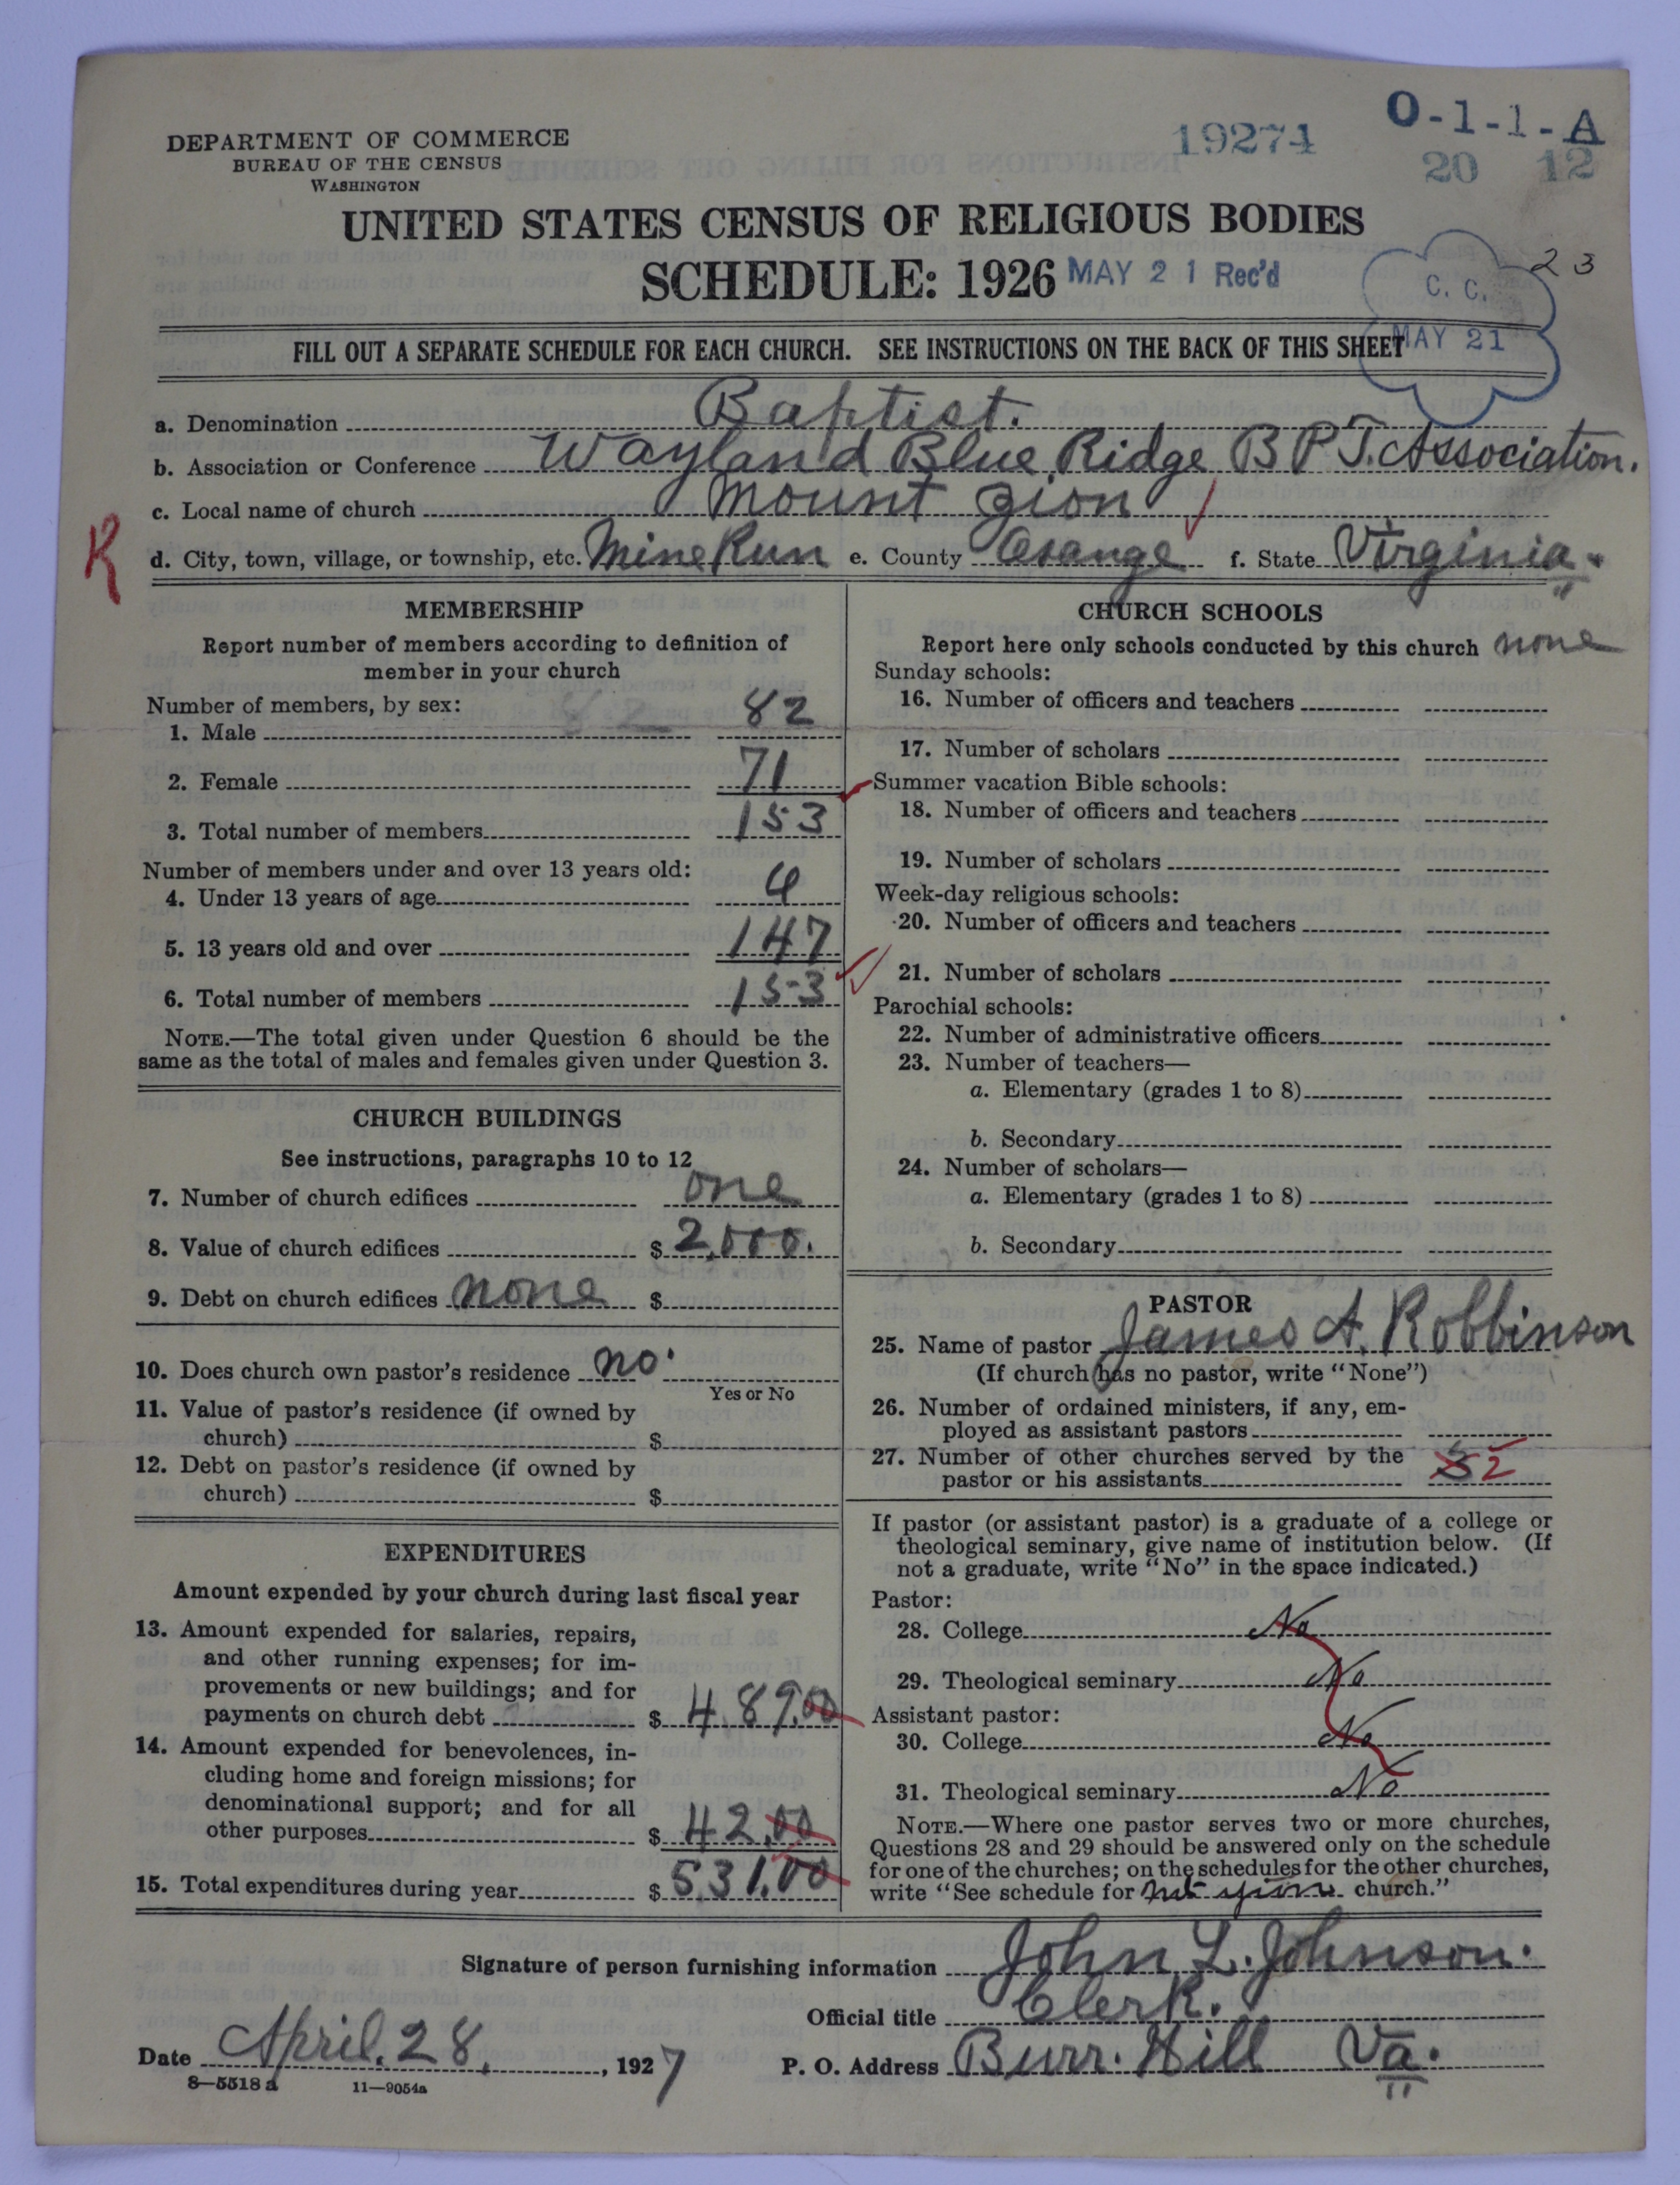 DEPARTMENT OF COMMERCE
BUREAU OF THE CENSUS
WASHINGTON
19274
O-1-1-A
20 12
UNITED STATES CENSUS OF RELIGIOUS BODIES
SCHEDULE: 1926
MAY 21 Rec'd
C. C.
MAY 21
23
FILL OUT A SEPARATE SCHEDULE FOR EACH CHURCH. SEE INSTRUCTIONS ON THE BACK OF THIS SHEET
a. Denomination Baptist.
b. Association or Conference Wayland Blue Ridge B P T. Association.
c. Local name of church Mount Zion
R
d. City, town, village, or township, etc. Mine Run e. County Orange f. State Virginia.
MEMBERSHIP
Report number of members according to definition of
member in your church
Number of members, by sex:
1. Male 82
2. Female 71
3. Total number of members 153
Number of members under and over 13 years old:
4. Under 13 years of age
5. 13 years old and over 147
6. Total number of members 153
NOTE.—The total given under Question 6 should be the
same as the total of males and females given under Question 3.
CHURCH BUILDINGS
See instructions, paragraphs 10 to 12
7. Number of church edifices one
8. Value of church edifices $ 2,000.
9. Debt on church edifices none $
10. Does church own pastor's residence no.
Yes or No
11. Value of pastor's residence (if owned by
church) $
12. Debt on pastor's residence (if owned by
church) $
EXPENDITURES
Amount expended by your church during last fiscal year
13. Amount expended for salaries, repairs,
and other running expenses; for im-
provements or new buildings; and for
payments on church debt $ 489.00
14. Amount expended for benevolences, in-
cluding home and foreign missions; for
denominational support; and for all
other purposes $ 42.00
15. Total expenditures during year $ 531.00
CHURCH SCHOOLS
Report here only schools conducted by this church none
Sunday schools:
16. Number of officers and teachers
17. Number of scholars
Summer vacation Bible schools:
18. Number of officers and teachers
19. Number of scholars
Week-day religious schools:
20. Number of officers and teachers
21. Number of scholars
Parochial schools:
22. Number of administrative officers
23. Number of teachers—
a. Elementary (grades 1 to 8)
b. Secondary
24. Number of scholars—
a. Elementary (grades 1 to 8)
b. Secondary
PASTOR
25. Name of pastor James A. Robbinson
(If church has no pastor, write "None")
26. Number of ordained ministers, if any, em-
ployed as assistant pastors
27. Number of other churches served by the
pastor or his assistants 2
If pastor (or assistant pastor) is a graduate of a college or
theological seminary, give name of institution below. (If
not a graduate, write "No" in the space indicated.)
Pastor:
28. College No
29. Theological seminary No
Assistant pastor:
30. College No
31. Theological seminary No
NOTE.—Where one pastor serves two or more churches,
Questions 28 and 29 should be answered only on the schedule
for one of the churches; on the schedules for the other churches,
write "See schedule for church."
Signature of person furnishing information John L. Johnson.
Official title Clerk.
Date April. 28, 1927 P. O. Address Burr. Hill Va.
8—5518 a 11—9054a